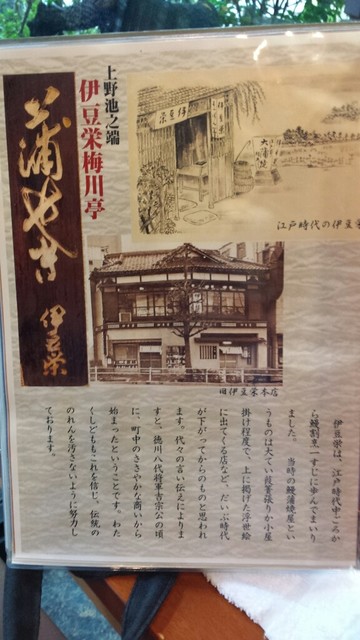 上野池之端
伊豆栄梅川亭
蒲やき
伊豆栄
江戸時代の伊豆栄
旧伊豆栄本店
伊豆栄は、江戸時代中ごろか
ら鰻割烹一すじに歩んでまいり
ました。当時の鰻蒲焼屋とい
うものは大てい葭簀張りか小屋
掛け程度で、上に掲げた浮世絵
に出てくる店など、だいぶ時代
が下がってからのものと思われ
ます。代々の言い伝えによりま
すと、徳川八代将軍吉宗公の頃
に、町中のささやかな商いから
始まったということです。わた
くしどももこれを信じ、伝統の
のれんを汚さないように努力し
ております。